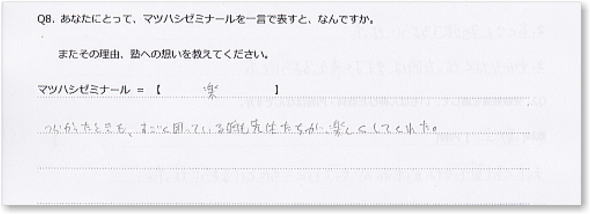 Q8. あなたにとって、マツハシゼミナールを一言で表すと、なんですか。
またその理由、塾への想いを教えてください。
マツハシゼミナール = 【 楽 】
つらかったときも、すごく困っている時も先生たちが、楽しくしてくれた。